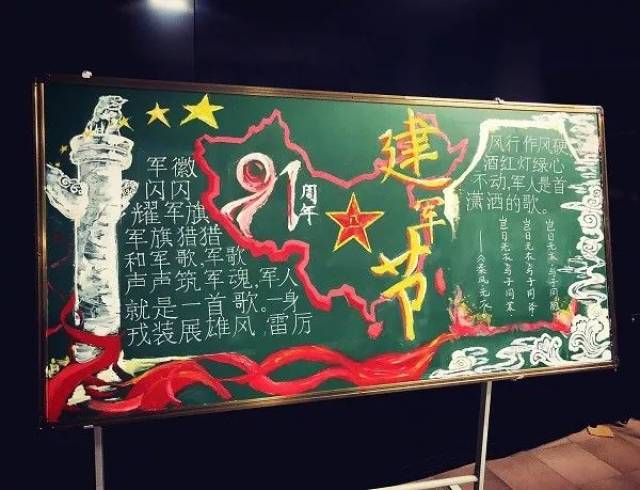 军徽
闪闪
耀军旗
军旗猎猎
和军歌,军歌
声声筑军魂,军人
就是一首歌。一身
戎装展雄风,雷厉
91周年
八一
建军节
风行作风硬
酒红灯绿心
不动,军人是首
潇洒的歌。
岂曰无衣与子同袍
岂曰无衣与子同泽
岂曰无衣与子同裳
——《秦风·无衣》